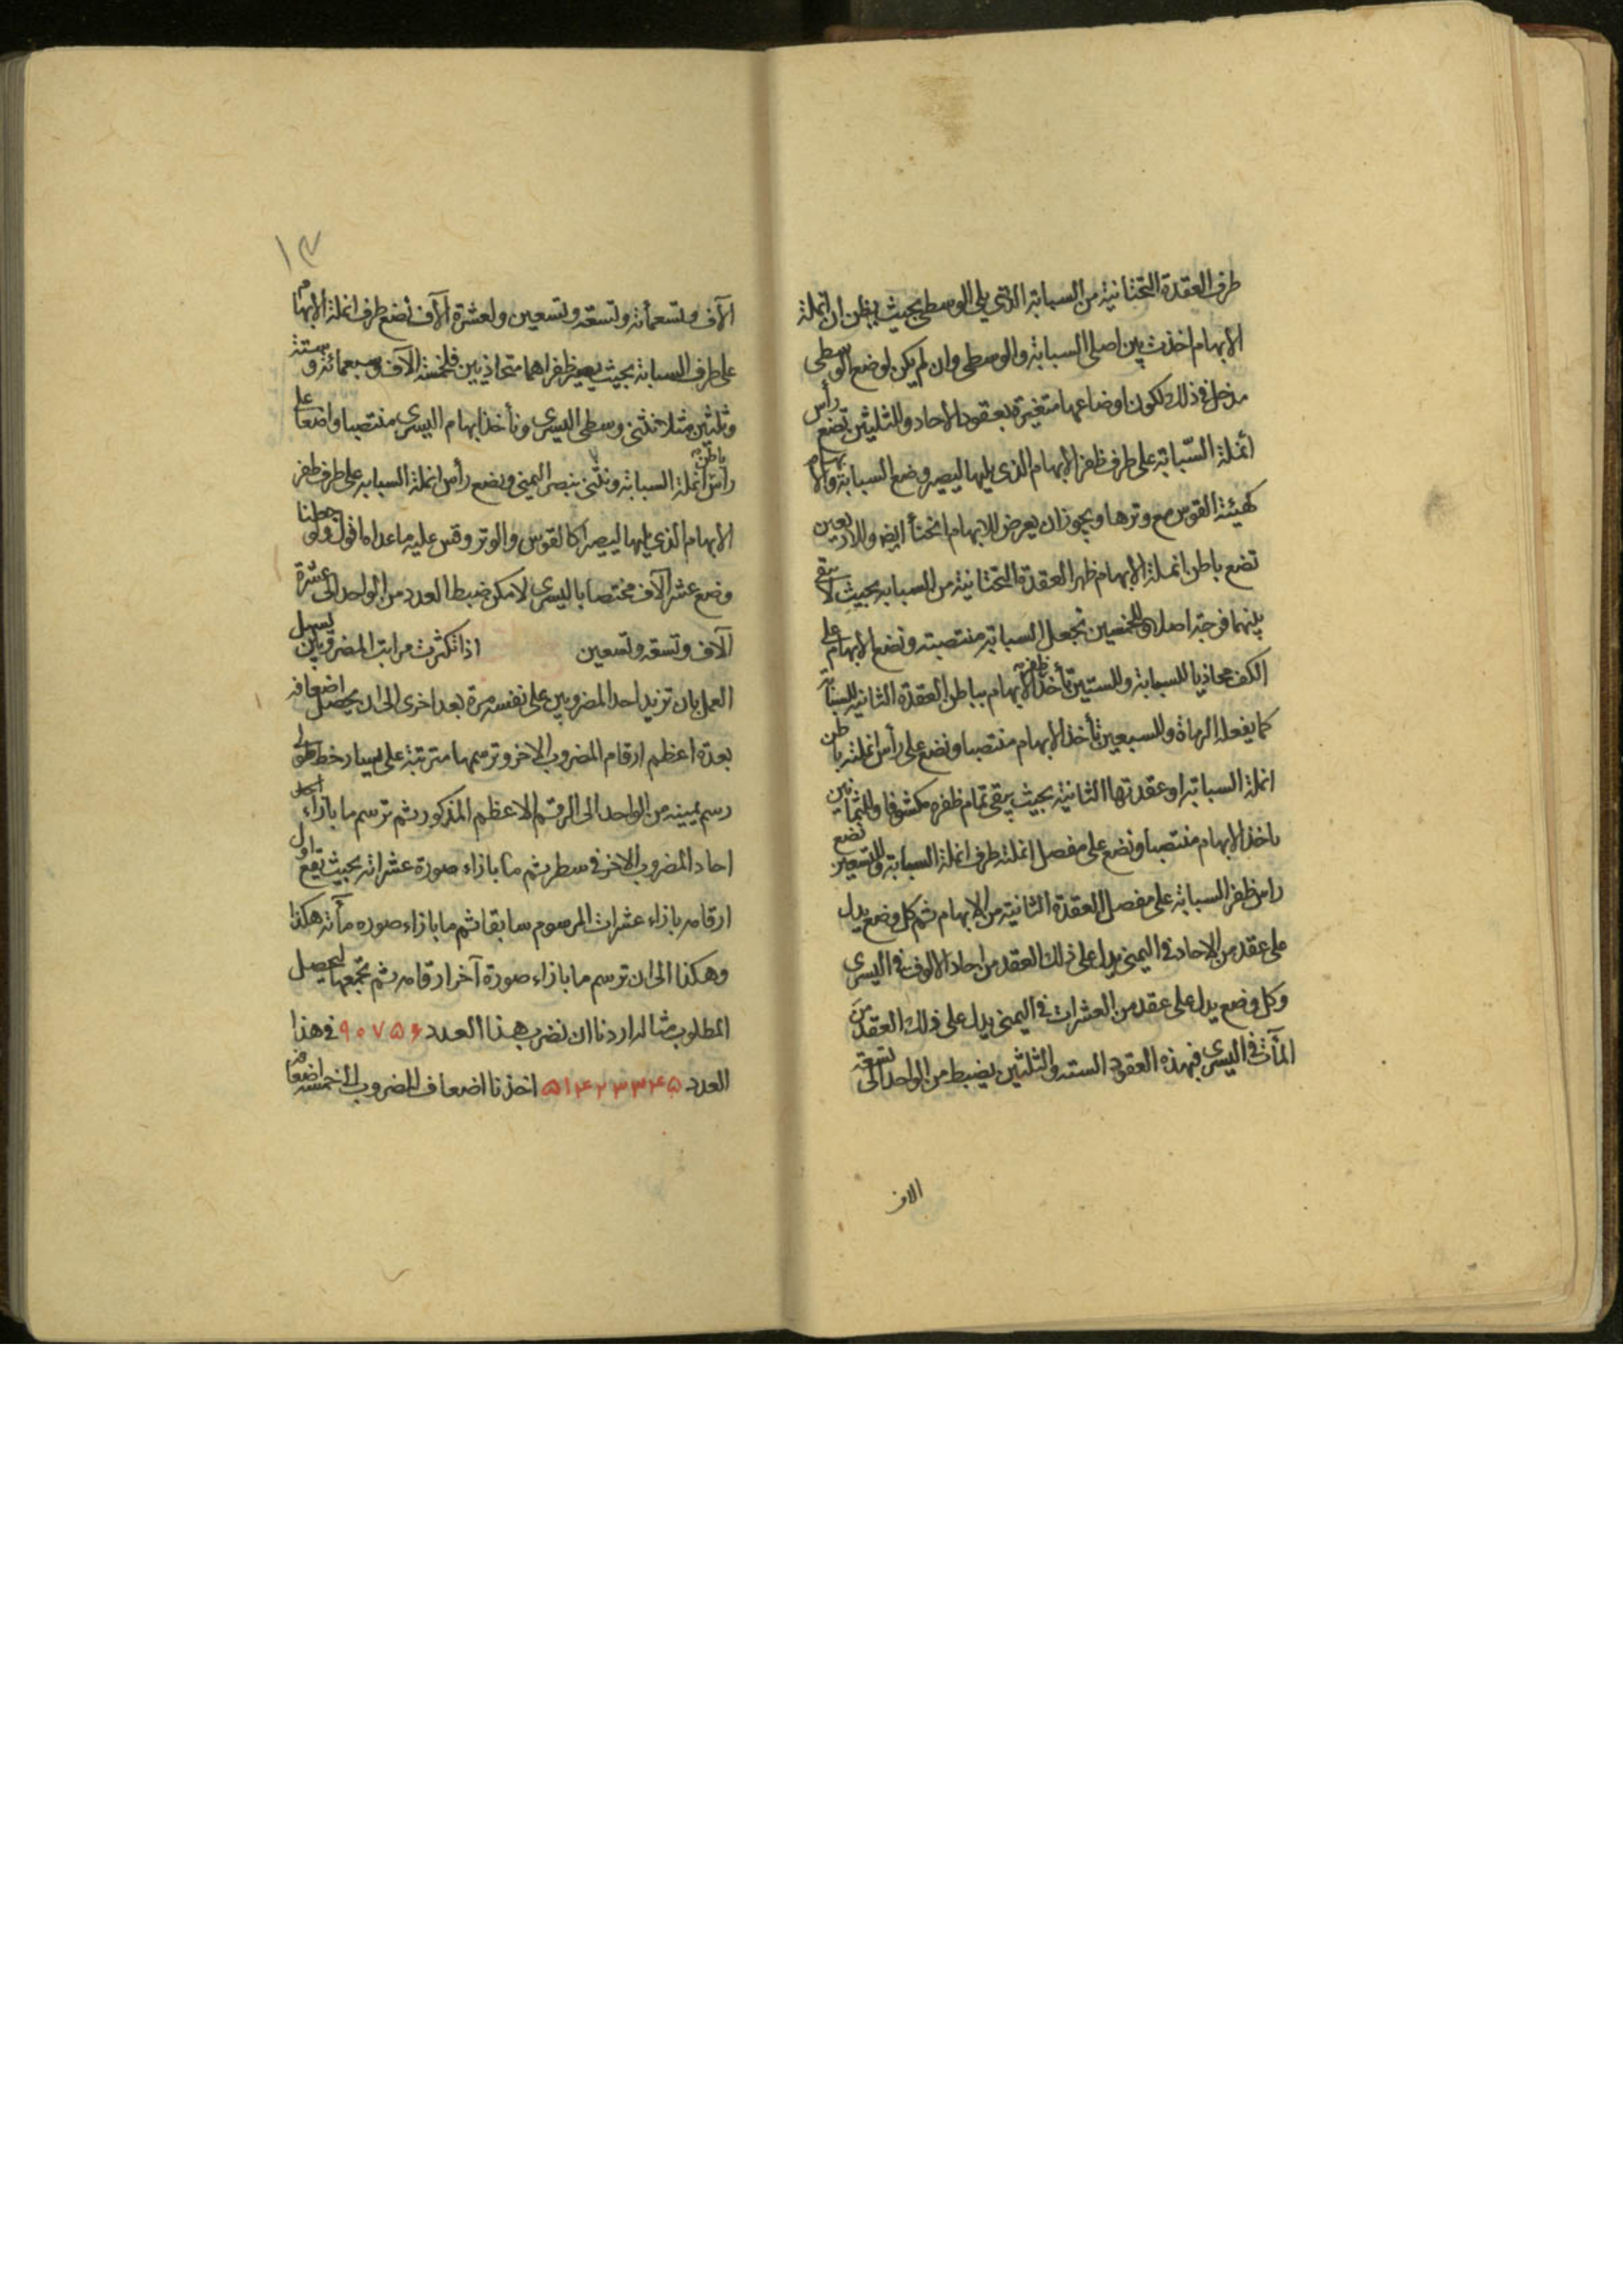 طرف العقدة التحتانية من السبابة الذى يلى الوسطى بحيث يظن ان انملة
الابهام اخذت بين اصلى السبابة والوسطى وان لم يكن لوضع الوسطى
مدخل فى ذلك لكون اوضاعها متغيرة بعقود الاحاد وللثلثين تضع رأس
أنملة السّبابة على طرف ظفر الابهام الذى يليها ليصير وضع السبابة والابهام
كهيئة القوس مع وترها ويجوز ان يعرض للابهام انحناأ ايض وللاربعين
تضع باطن انملة الابهام ظهر العقدة التحتانية من السبابه بحيث لا يبقى
بينهما فرجة اصلا وللخمسين تجعل السبابة منتصبته وتضع الابهام على
الكف محاذيا للسبابة وللستين تأخذ ظفر الابهام بباطن العقدة الثانية للسبابة
كما يفعله الرماة وللسبعين تأخذ الابهام منتصبا وتضع على رأس انملته باطن
انملة السبابة او عقدتها الثانية بحيث يبقى تمام ظفره مكشوفا وللثمانين
تاخذ الابهام منتصبا وتضع على مفصل انملته طرف انملة السبابة وللتسعين تضع
راس ظفر السبابة على مفصل العقدة الثانية من الابهام ثم كل وضع يدل
على عقد من الاحاد فى اليمنى يدل على ذلك العقد من احاد الالوف فى اليسرى
وكل وضع يدل على عقد من العشرات فى اليمنى يدل على ذلك العقد من
المأت فى اليسرى فبهذه العقود الستة والثلثين يضبط من الواحد الى تسعة
الاف
١٢
الآف وتسعمأئة وتسعة وتسعين ولعشرة الآف تضع طرف انملة الابهام
على طرف السبابة بحيث يصير ظفراهما متحاذيين فلخمسة الآف وسبعمائة وستة
وثلثين مثلا نثنى وسطى اليسرى ونأخذ ابهام اليسرى منتصبا واضعا على
رأس انملته باطن انملة السبابة ونثنى بنصر اليمنى ونضع رأس انملة السبابه على طرف ظفر
الابهام الذى يليها ليصيرا كالقوس والوتر وقس عليه ماعداه اقول ولو جعلنا
وضع عشر الآف مختصا باليسرى لامكن ضبط العدد من الواحد الى عشرة
الآف وتسعة وتسعين اذا تكثرت مراتب المضروبين يسهل
العمل بان تزيد احد المضروبين على نفسه مرة بعد اخرى الى ان يحصل اضعافه
بعدة اعظم ارقام المضروب الاخر وترسمها مترتبة على يسار خط طولى
رسم بيمينه من الواحد الى الرقم الاعظم المذكور ثم ترسم ما بازاء
احاد المضروب الاخر فى سطر ثم ما بازاء صورة عشراته بحيث يقع اول
ارقامه بازاء عشرات المرسوم سابقا ثم ما بازاء صوره مأته هكذا
وهكذا الى ان ترسم ما بازاء صورة آخر ارقامه ثم تجمعها ليحصل
المطلوب مثاله اردنا ان نضرب هذا العدد ٩٠٧٥۶ فى هذا
العدد ۵۱۴۲۳۳۴۵ اخذنا اضعاف المضروب الى خمسة اضعاف